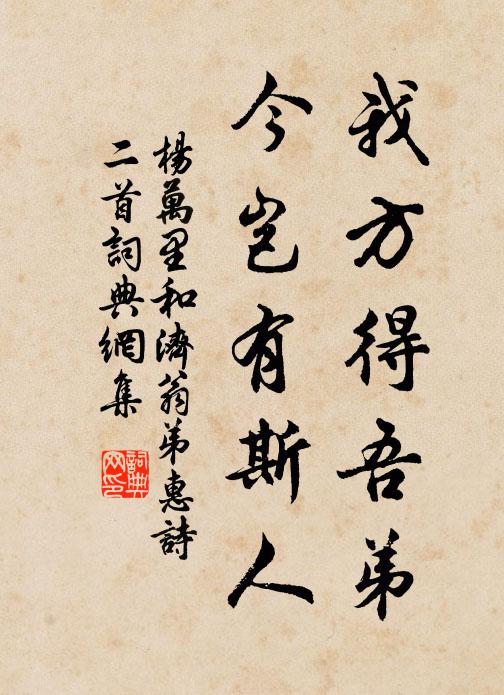 我方得吾弟
今岂有斯人
楊萬里和濟翁弟惠詩
二首詞典網集
詞典
网印